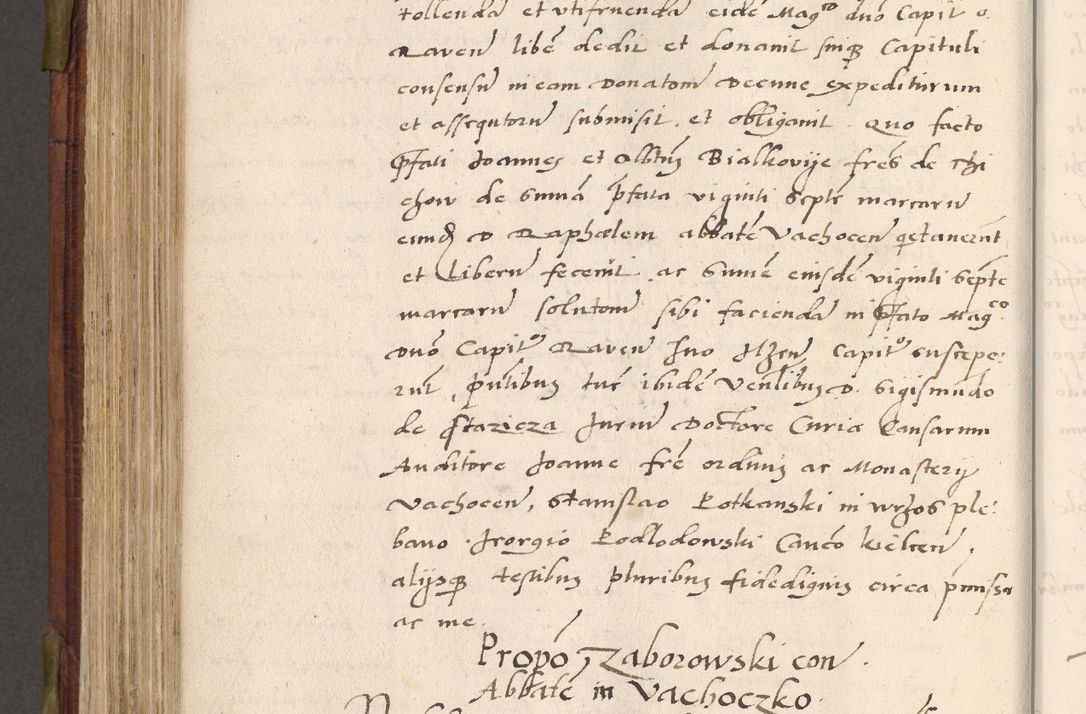 tollenda et vtifruenda eidē Mag^co^ dnō Capit^o^
Raven̄ libē dedit et donavit suiq₃ Capituli
consensū in eam Donatom̄ Decime expediturum
et assequtorū submisit et obligavit. Quo facto
p̄fati Joannes et Albtūs Bialkovije fr̄es de Chi
chow de Summā p̄fata viginti septē marcarū
eund̄ D Raphælem abbatē Vachocen̄ qetaverūnt
et Liberū fecerūt. ac Summē eiusdē viginti septē
marcarū solutom̄ sibi faciendā in p̄fato Mag^co^
Dnō Capit^o^ Raven̄ Suo Ilzen̄ Capit^o^ suscepe:
rūt, p̄ntibus tūc ibidē Ven̄libus D. Sigismūdo
de Stazicza Juriū Doctore Curiæ Causarum
Auditore Joanne fr̄e ordinis ac Monasterij
Vachocen̄, Stanislao Kotkanski in wrzos ple:
bano. Georgio Kodlodowski Canco kielcen̄.
alijsq₃ testibus pluribus fidedignis circa p̄missa
ac me.
Propō Zaborowski con̄.
Abbatē in Vachoczko.